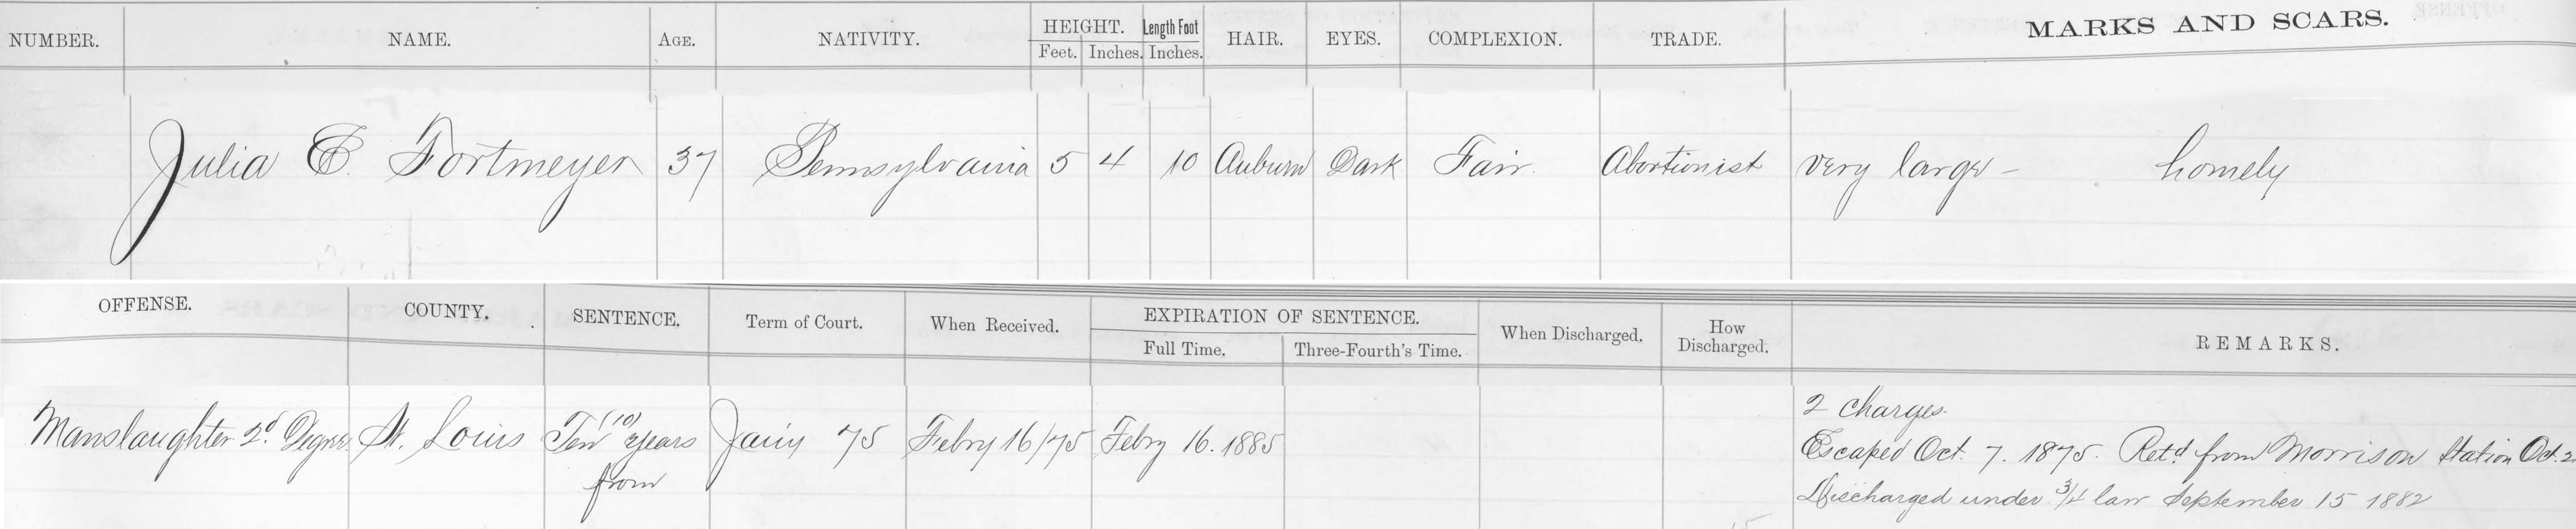 NUMBER. NAME. AGE. NATIVITY. HEIGHT. Feet. Inches. Length Foot Inches. HAIR. EYES. COMPLEXION. TRADE. MARKS AND SCARS.
Julia E. Fortmeyer 37 Pennsylvania 5 4 10 Auburn Dark Fair Abortionist very large - homely
OFFENSE. COUNTY. SENTENCE. Term of Court. When Received. EXPIRATION OF SENTENCE. Full Time. Three-Fourth's Time. When Discharged. How Discharged. REMARKS.
2 charges.
Manslaughter 2d. Degree. St. Louis Ten (10) years Jany 75 Febry 16/75 Febry 16. 1885 Escaped Oct. 7. 1875. Retd. from Morrison Station Oct. 2
from Discharged under 3/4 law September 15 1882